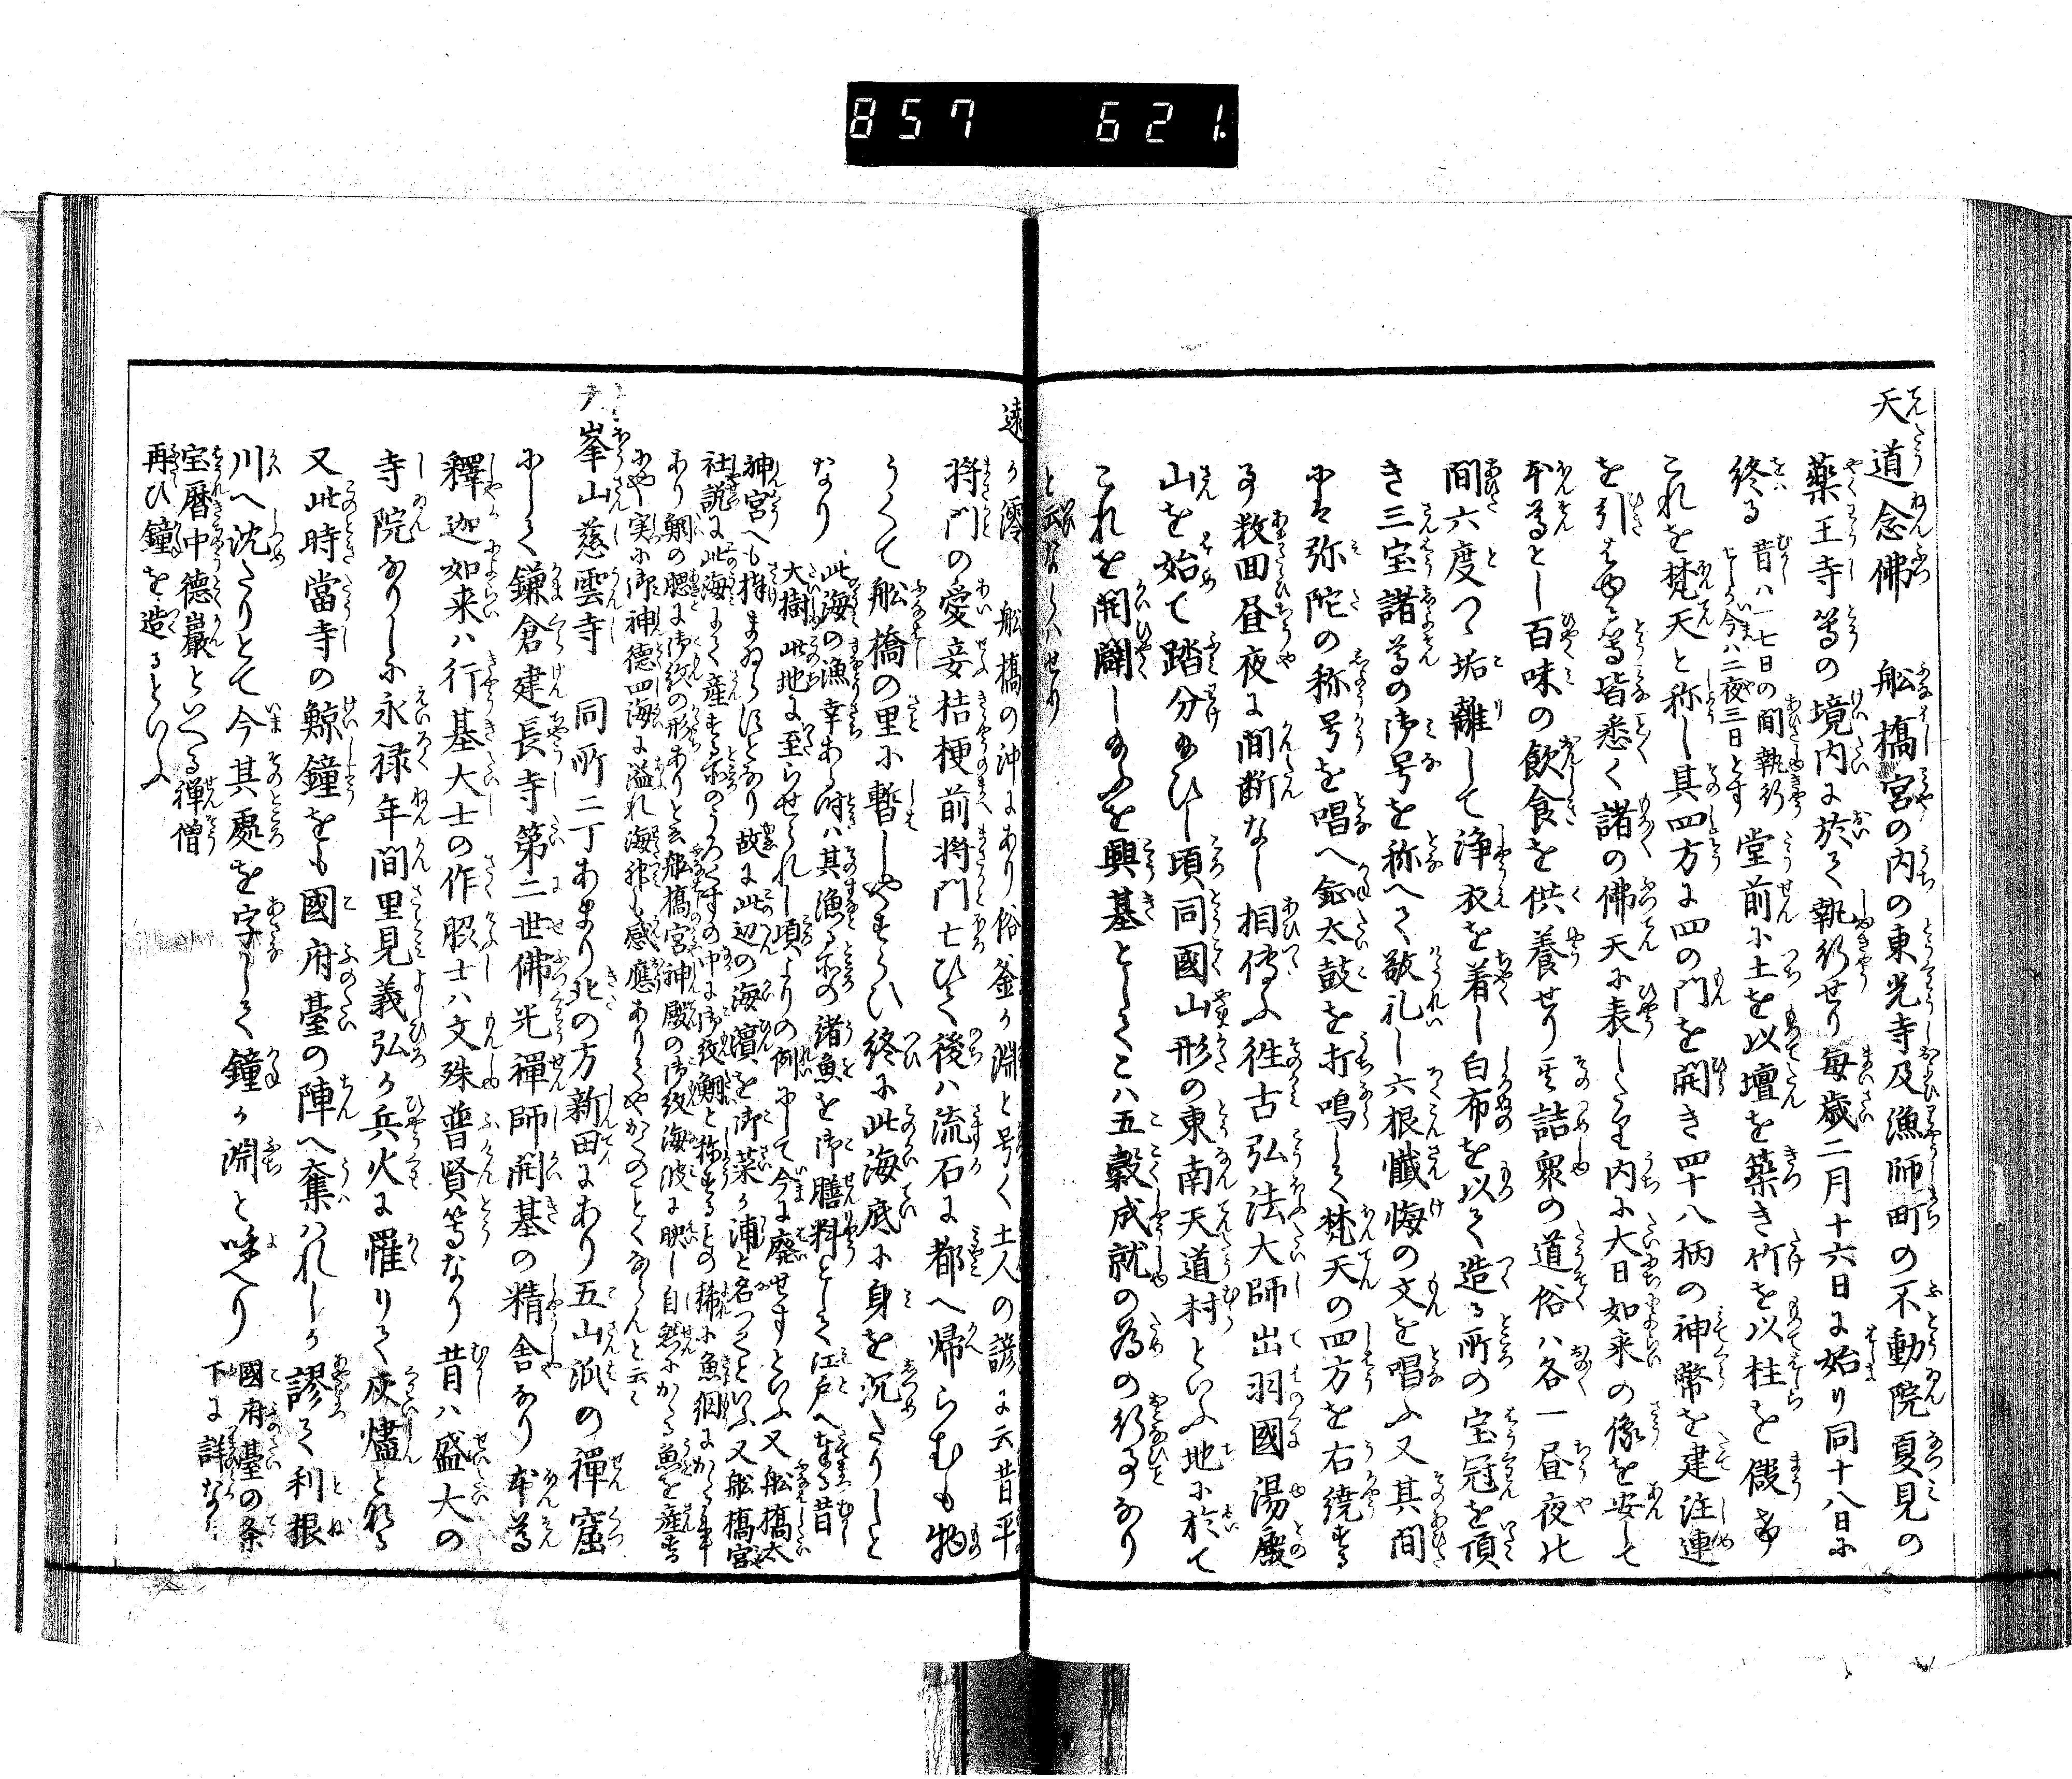 857 621.
天道念佛 舩橋宮の内の東光寺及漁師町の不動院夏見の
薬王寺等の境内に於て執行せり毎歳二月十六日に始り同十八日に
終る 昔ハ一七日の間執行せしか今ハ二夜三日とす 堂前に土を以壇を築き竹を以柱を儲け
これを梵天と称し其四方に四の門を開き四十八柄の神幣を建注連
を引はゆる等皆悉く諸の佛天に表したり内に大日如来の像を安して
本尊とし百味の飲食を供養せり其詰衆の道俗ハ各一昼夜の
間六度つゝ垢離して浄衣を着し白布を以て造る所の宝冠を頂
き三宝諸尊の御号を称へて敬礼し六根懺悔の文を唱ふ又其間
には弥陀の称号を唱へ鉦太鼓を打鳴して梵天の四方を右繞する
事数回昼夜に間断なし相傳ふ往古弘法大師出羽國湯殿
山を始て踏分給ひし頃同國山形の東南天道村といふ地に於て
これを開闢し給ふを興基としてこハ五穀成就の為の行事なり
と云ならハせり
遠か澪 舩橋の沖にあり俗釜か淵と号く土人の諺に云昔平
将門の愛妾桔梗前将門亡ひて後ハ流石に都へ帰らむも物
うくて舩橋の里に暫しやすらひ終に此海底に身を沉たりしと
なり 此海の漁幸ある時ハ其漁る所の諸魚を御膳料として江戸へ奉る昔
大樹此地に至らせられし頃よりの例にして今に廃せすといふ又舩橋太
神宮へも捧まゐらすとなり故に此辺の海濱を御菜か浦と名つくといふ又舩橋宮
社説に此海にて産する所のうろくすの中に御紋鯛と称するもの稀に魚網にかゝる事
あり鯛の腮に御紋の形ありと云舩橋宮神殿の御紋海波に映し自然にかゝる魚を産する
にや実に御神徳四海に溢れ海神も感應ありてやかくのことくならんと云々
峯山慈雲寺 同所二丁あまり北の方新田にあり五山派の禪窟
にして鎌倉建長寺第二世佛光禪師開基の精舎なり本尊
釋迦如来ハ行基大士の作脇士ハ文殊普賢等なり昔ハ盛大の
寺院なりしに永禄年間里見義弘か兵火に罹りて灰燼となる
又此時當寺の鯨鐘をも國府臺の陣へ奪ハれしか謬て利根
川へ沈たりとて今其處を字して鐘か淵と呼へり 國府臺の条下に詳なり
宝暦中德巖といへる禅僧
再ひ鐘を造るといふ